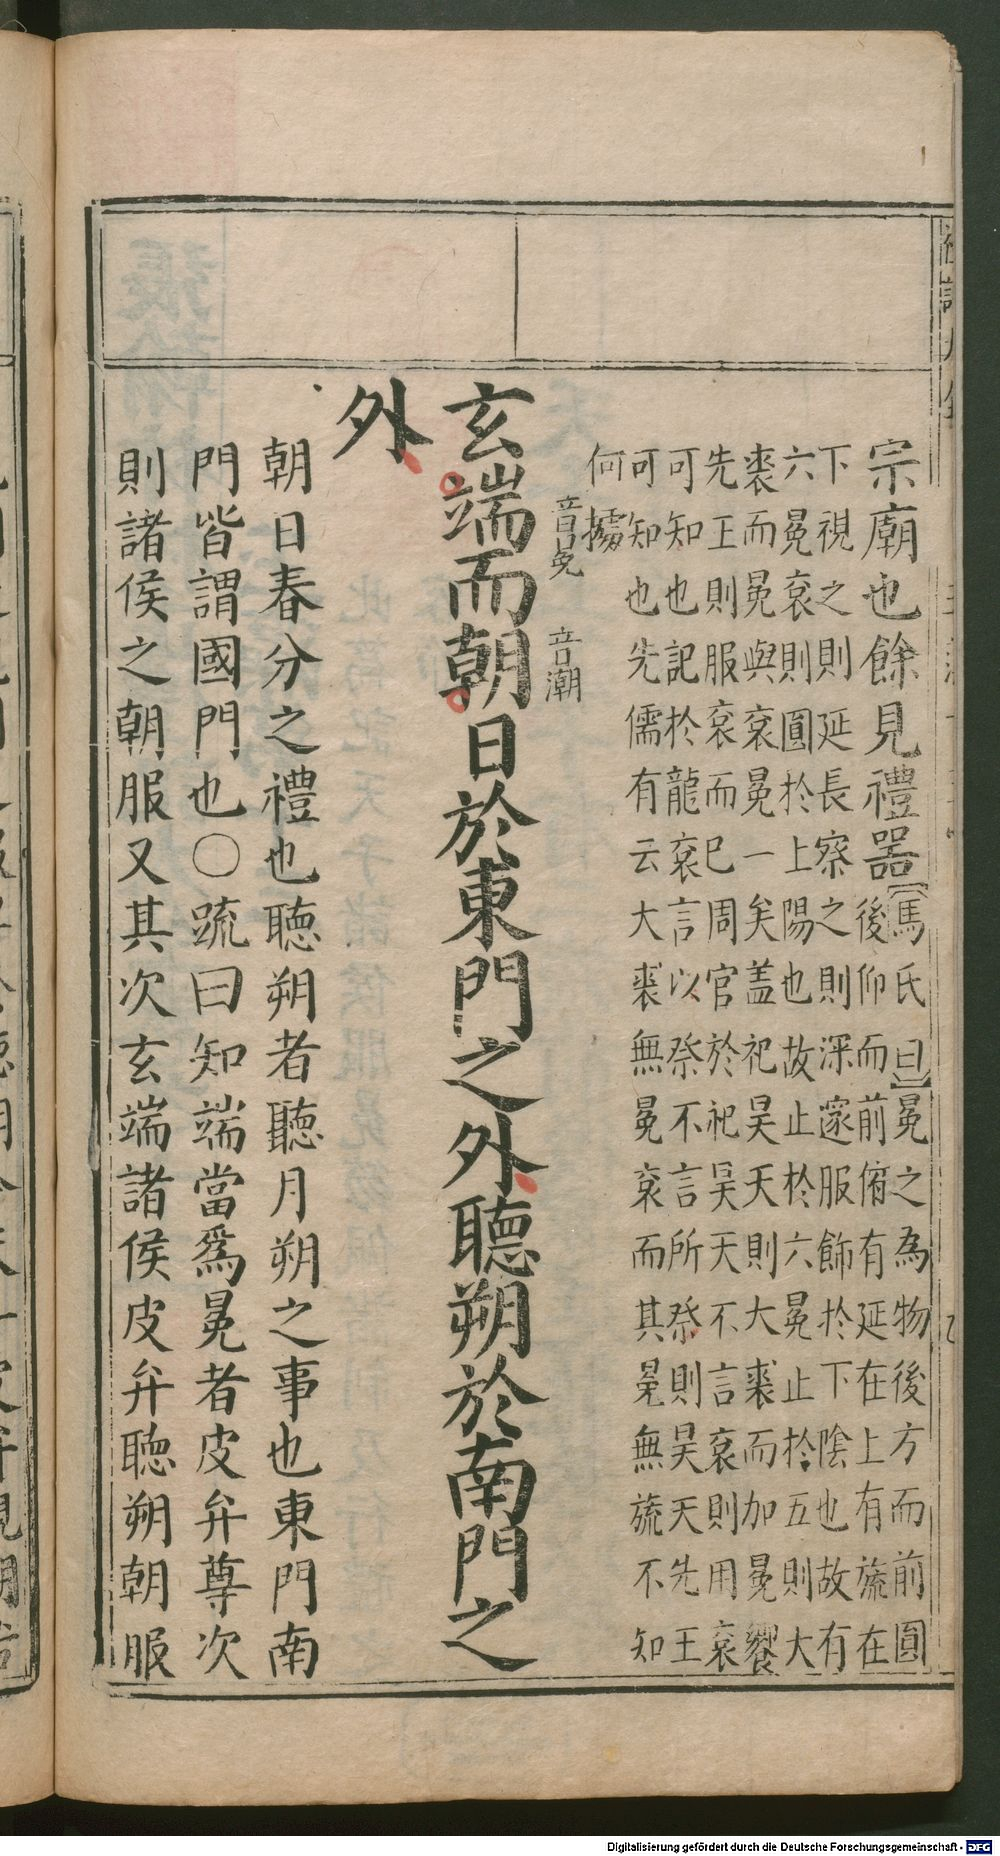 宗廟也餘見禮器【馬氏曰】冕之為物後方而前圓
後仰而前俯有延在上有旒在
下視之則延長察之則深邃服飾於下陰也故有
六冕衮則圓於上陽也故止於六冕止於五則大
裘而冕與衮冕一矣盖祀昊天則大裘而加冕饗
先王則服衮而已周官於祀昊天不言衮則用衮
可知也記於龍衮言以祭不言所祭則昊天先王
可知也先儒有云大裘無冕衮而其冕無旒不知
何據
玄端而朝日於東門之外聽朔於南門之
音冕
音潮
外
朝日春分之禮也聽朔者聽月朔之事也東門南
門皆謂國門也○疏曰知端當爲冕者皮弁尊次
則諸侯之朝服又其次玄端諸侯皮弁聽朔朝服
Digitalisierung gefördert durch die Deutsche Forschungsgemeinschaft - DFG